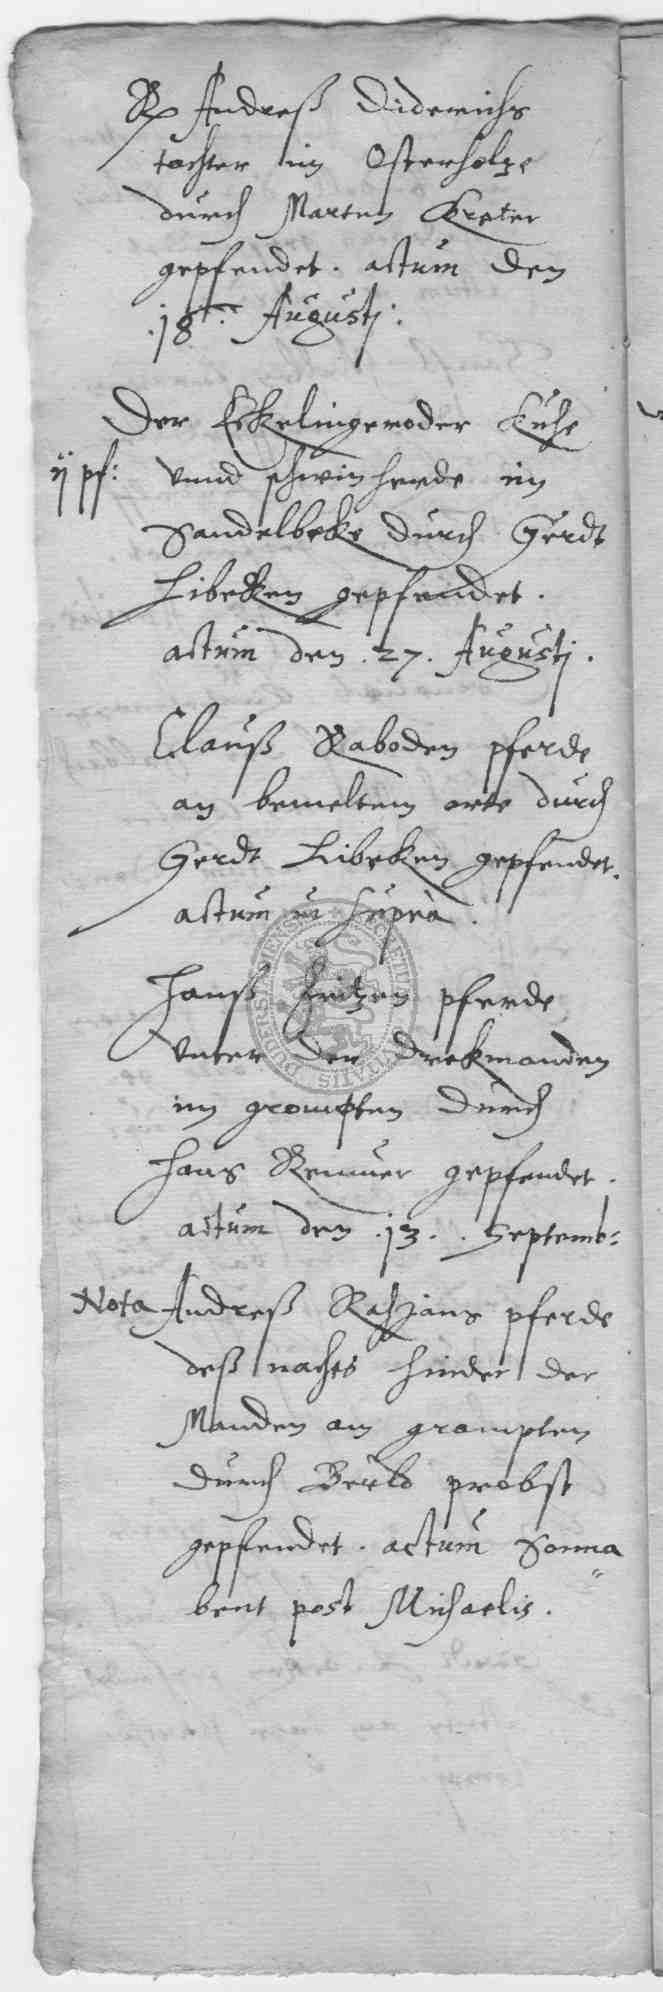 Rp Andreß Diderichs
tochter im Osterholtze
durch Marten Krater
gepfendet. actum den
.18. Augustj.
Der Eckelingeroder Kuhe
ij pf: vnnd schwin herde im
Sandelbeke durch Gerdt
Libeken gepfendet.
actum den .27. Augustj.
Clauß Raboden pferde
an bemeltem orte durch
Gerdt Libeken gepfendet.
actum ut supra.
Hanß Fritzen pferde
vnter der Drekmanden
im grompten durch
Hans Remmer gepfendet.
actum den .13. Septemb:
Nota Andreß Rahjans pferde
deß nachts hinder der
Manden am grampten
durch probst
gepfendet. actum Sonna
bent post Michaelis.